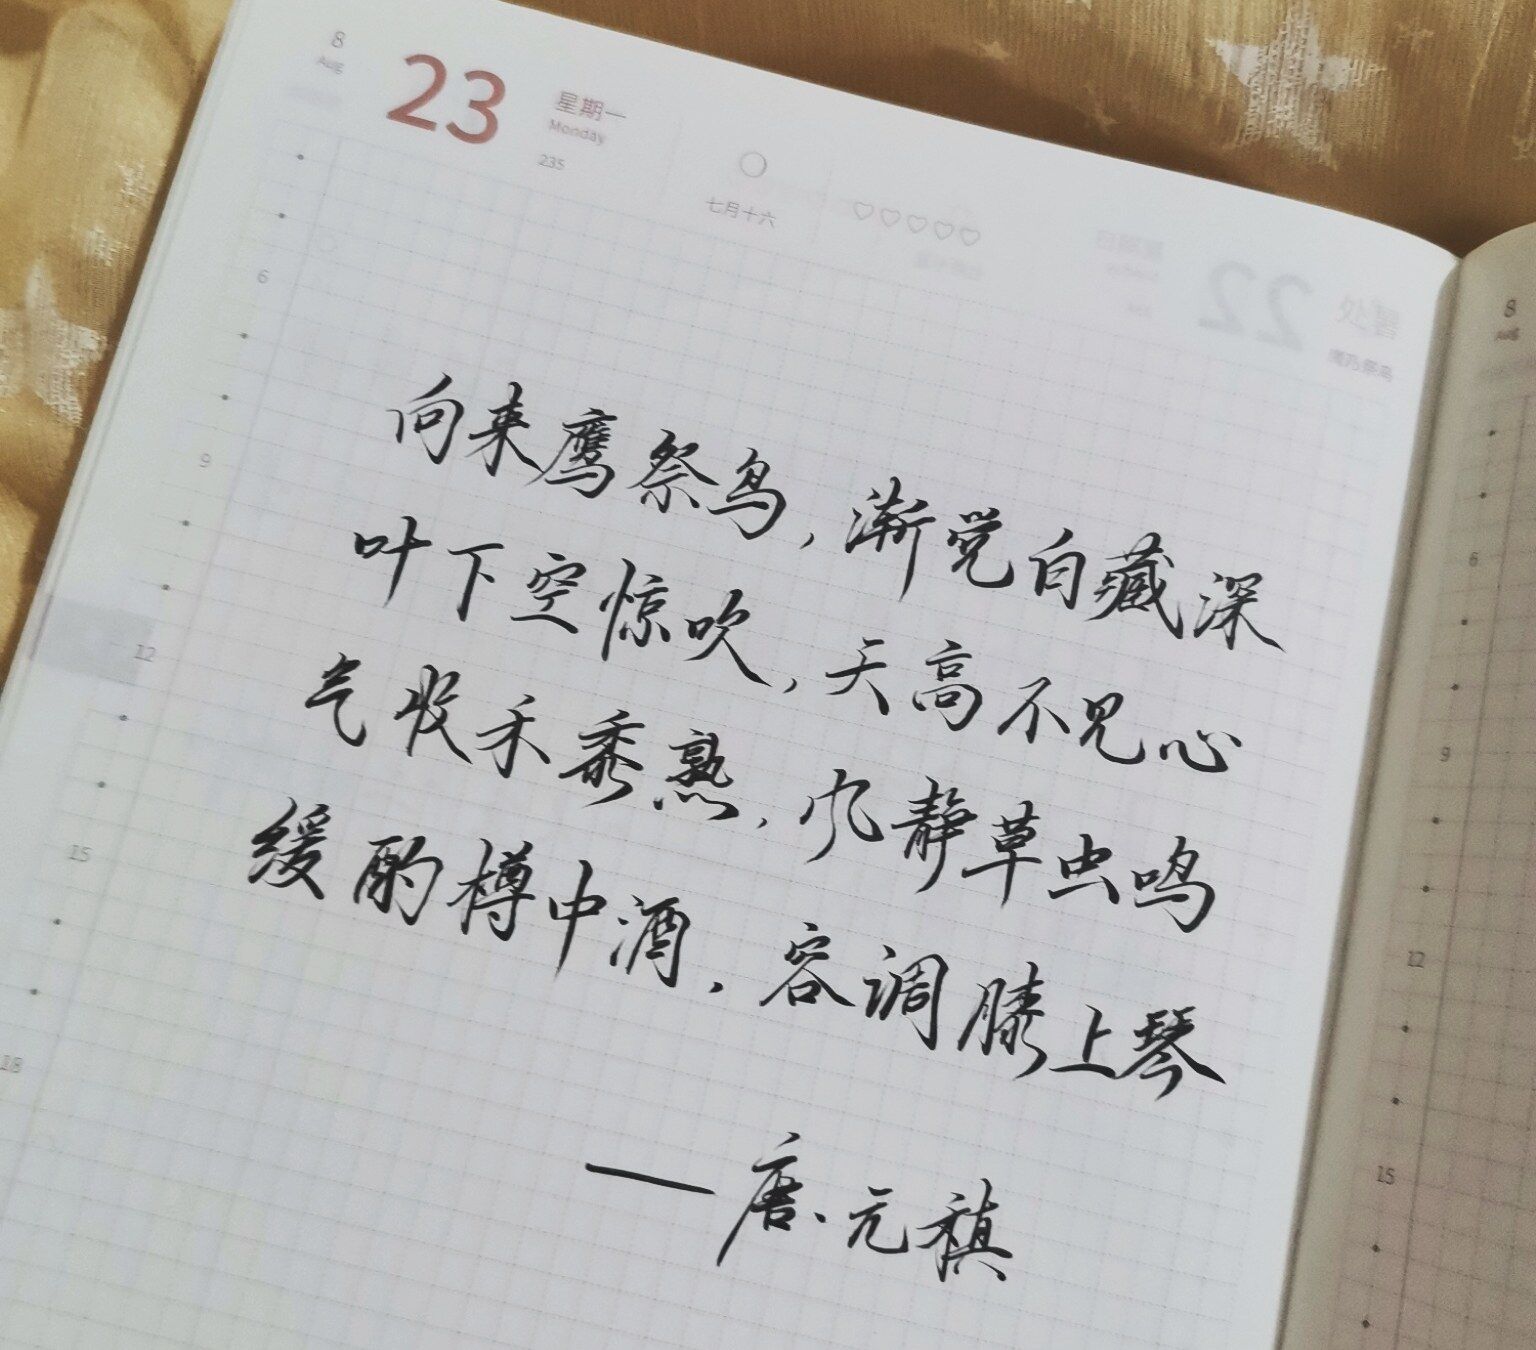 8
Aug
23
星期一
Monday
235
七月十六
处暑
鹰乃祭鸟
6
9
12
15
18
向来鹰祭鸟,渐觉白藏深
叶下空惊吹,天高不见心
气收禾黍熟,风静草虫鸣
缓酌樽中酒,容调膝上琴
——唐、元稹
8
Aug
6
9
12
15